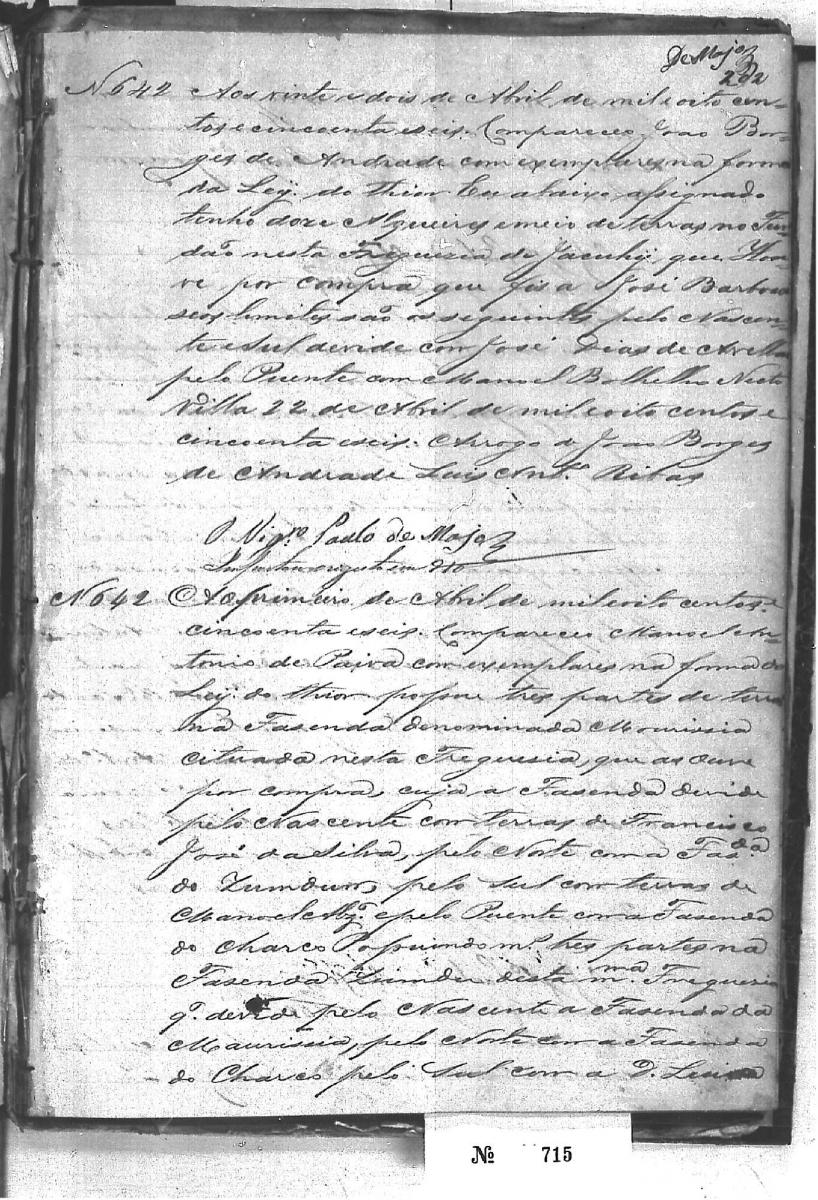 De Majo
202
N 642 Aos vinte e dois de Abril de mil oito cen-
tos e cincoenta e seis. Compareceo Joao Bor-
ges de Andrade com exemplares na forma
da Ley. do thior Eu abaixo assignado
tenho doze Alqueires e meio de terras no Fun-
daõ nesta Freguezia de Jacuhy, que Hou-
ve por compra que fis a José Barbosa
seos limites saõ os seguintes pelo Nascen-
te e Sul devide com José Dias de Avellar
pelo Puente com Manoel Bolhelho Neto
Villa 22 de Abril de mil oito centos e
cincoenta e seis. Arrogo de Joao Borges
de Andrade Luis Ant.º Ribas
O Vigr.º Paulo de Majo
N 642 Ao primeiro de Abril de mil oito centos e
cincoenta e seis. Compareceo Manoel An-
tonio de Paiva com exemplares na forma da
Ley. do thior possue tres partes de terra
na Fasenda denominada Mourissia
cituada nesta Freguesia, que as ouve
por compra, cuja a Fasenda devide
pelo Nascente com terras de Francisco
José da Silva, pelo Norte com a Fasda
do Zumdum, pelo Sul com terras de
Manoel e pelo Puente com a Fasenda
do Charco Possuindo m.ª tres partes na
Fasenda desta m.ma Freguesia
q.' devide pelo Nascente a Fasenda da
Maurissia, pelo Norte com a Fasenda
do Charco pelo Sul com a D. Luisa
№ 715